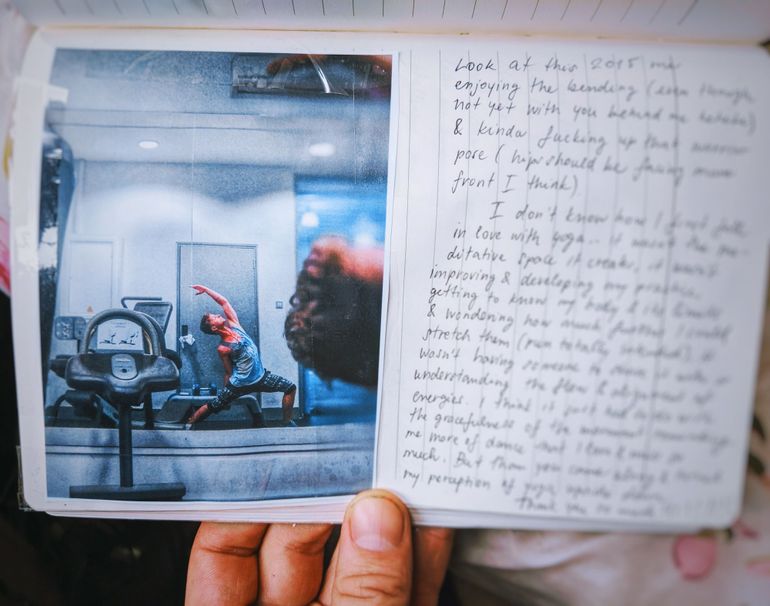 Look at this 2015 me
enjoying the bending (even though
not yet with you behind me hahaha)
& kinda fucking up that warrior
pose (hips should be facing more
front I think)
I don't know how I first fell
in love with yoga.. it wasn't the me-
ditative space it creates, it wasn't
improving & developing my practice,
getting to know my body & its limits
& wondering how much further I could
stretch them (pun totally intended)
wasn't having someone to
understanding the flow & alignment of
energies. I think it just had to do with
the gracefulness of the movement
me more of dance that I love & miss so
much. But then you came along & turned
my perception of yoga upside down.
Thank you so much